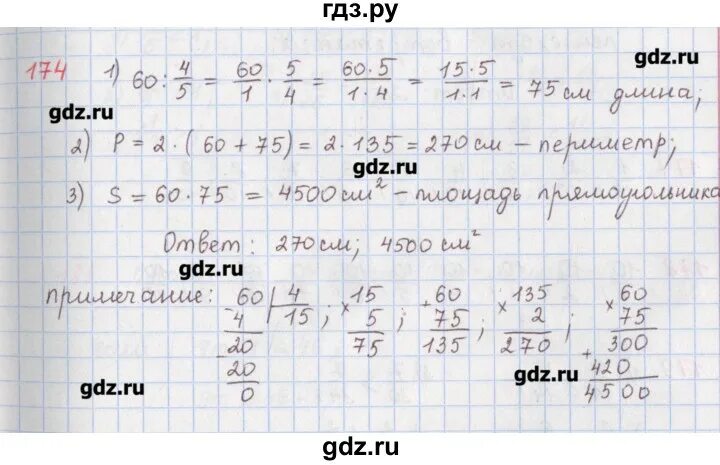 гдз.ру
174 1) 60 : 4/5 = 60/1 · 5/4 = 60·5/1·4 = 15·5/1·1 = 75 см длина;
gdz.ru
gdz.ru
2) P = 2 · (60 + 75) = 2 · 135 = 270 см – периметр;
gdz.ru
3) S = 60 · 75 = 4500 см² – площадь прямоугольника
Ответ: 270 см; 4500 см²
gdz.ru
примечание: 60 | 4 ; × 15 ; + 60 ; × 135 ; × 60
- 4 15 5 75 2 75
- 20 75 135 270 300
20 + 420
0 4500
gdz.ru
gdz.ru
gdz.ru